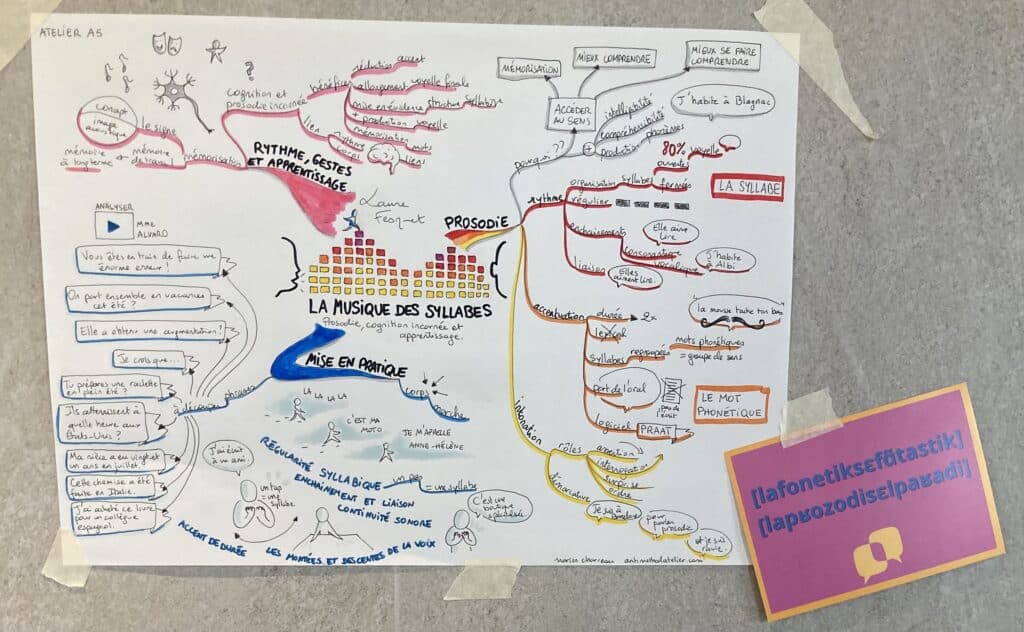 ATELIER A5
?
concept
image
acoustique
le signe
mémoire
à long terme
mémoire
de travail
mémorisation
RYTHME, GESTES
ET APPRENTISSAGE
cognition et
prosodie incarnée
bénéfices
réduction accent
allongement voyelle finale
mise en évidence structure syllabique
+ production voyelle
mémorisation mots
liens
lien rythme
corps
Laure
Fesquet
PROSODIE
LA MUSIQUE DES SYLLABES
Prosodie, cognition incarnée et
apprentissage.
pourquoi ??
ACCÉDER
AU SENS
MÉMORISATION
MIEUX COMPRENDRE
MIEUX SE FAIRE
COMPRENDRE
intelligibilité
compréhensibilité
+ production phonèmes
J'habite à Blagnac
rythme
organisation syllabes
80% voyelle
ouvertes
fermées
LA SYLLABE
régulier
enchaînements
consonantique
vocalique
Elle aime
lire
J'habite
à Albi
liaison
Elles
aiment lire.
accentuation
durée → 2x
lexical
syllabes regroupées
mots phonétiques
= groupe de sens
part de l'oral
pas de
l'écrit
logiciel PRAAT
LE MOT
PHONÉTIQUE
intonation
rôles
assertion
interrogation
surprise
ordre
démarcative
Je suis à
pour
parler
prosodie
et je suis
ravie.
MISE EN PRATIQUE
corps
marche
LA LA LA LA
C'EST MA
MOTO
JE M'APPELLE
ANNE-HÉLÈNE
RÉGULARITÉ SYLLABIQUE
ENCHAINEMENT ET LIAISON
CONTINUITÉ SONORE
un pas = une syllabe
J'ai écrit
à un ami.
un tap
= une
syllabe
ACCENT DE DURÉE
LES MONTÉES ET DESCENTES DE LA VOIX
C'est une
boutique
spécialisée
phrases
à découper
ANALYSER
MME
ALVARD
Vous êtes en train de faire une
énorme erreur !
On part ensemble en vacances
cet été ?
Elle a obtenu une augmentation !
Je crois que...
Tu prépares une raclette
en plein été ?
Ils atterrissent à
quelle heure aux
États-Unis ?
Ma nièce a eu vingt et
un ans en juillet.
Cette chemise a été
faite en Italie.
J'ai acheté ce livre
pour un collègue
espagnol.
marion charreau antimethodatelier.com
[lafonetiksɛfɑ̃tastik]
[lapʁozodisɛlpaʁadi]